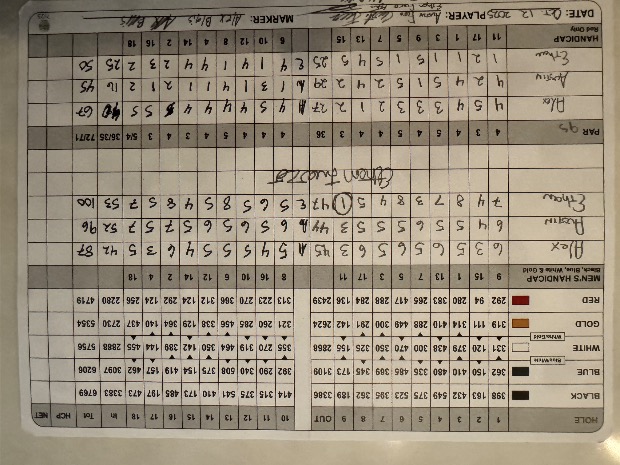 HOLE 1 2 3 4 5 6 7 8 9 OUT 10 11 12 13 14 15 16 17 18 In Tot HCP NET
BLACK 398 163 432 549 375 523 395 362 189 3386 414 315 375 541 410 173 485 197 473 3383 6769
BLUE 362 150 410 480 336 485 345 173 3109 392 290 340 508 375 154 419 157 462 3097 6206
Blue/White
WHITE 331 120 379 438 300 470 350 325 155 2868 355 270 319 464 350 142 389 144 455 2888 5756
White/Gold
GOLD 319 111 314 410 288 449 300 291 142 2624 321 260 285 456 338 129 364 140 437 2730 5354
RED 292 94 280 383 265 417 288 284 136 2439 313 223 270 366 312 124 292 124 256 2280 4719
MEN'S HANDICAP 9 15 1 13 7 5 3 17 11 8 16 10 6 12 14 2 4 18
Black, Blue, White & Gold
Alex 6 3 5 6 5 6 5 6 3 45 A 5 4 5 5 5 4 6 3 5 42 87
Austin 6 4 5 5 6 5 5 5 3 44 A 6 5 6 5 6 5 7 5 7 52 96
Ethan 7 4 8 7 3 8 4 5 1 47 E 5 6 5 8 5 4 8 5 7 53 100
Ethan
PAR 4 3 4 5 4 5 4 4 3 36 4 4 4 5 4 3 4 3 5/4 36/35 72/71
Alex 4 5 4 3 3 3 2 1 2 27 A 4 5 4 4 4 5 5 67
Austin 4 2 4 5 1 5 2 4 2 29 A 1 3 1 4 1 1 2 1 2 16 45
Ethan 1 2 1 1 5 1 5 4 5 25 E 4 1 4 1 4 4 2 3 2 25 50
HANDICAP 11 17 1 3 9 5 7 13 15 6 12 10 8 4 14 2 16 18
Red Only
DATE: Oct. 12, 2025 PLAYER: MARKER: Alex